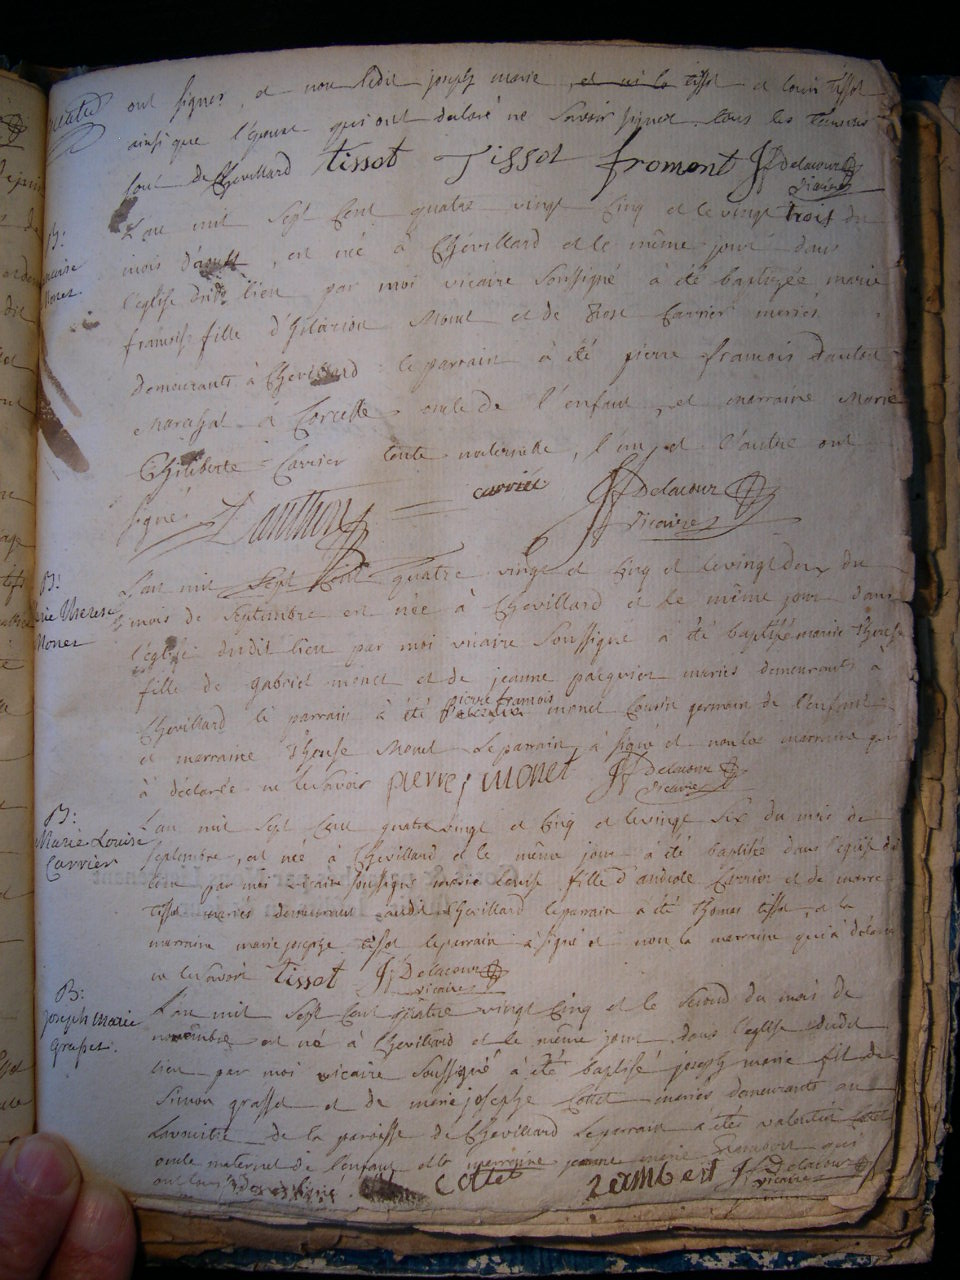 ont signés, et non ledit joseph marie et où la tissot et louis tissot
ainsi que l'épouse qui ont declaré ne savoir signer tous les temoins
sont de Chevillard tissot Tissot fromont JJ Delacour
vicaire
L'an mil sept Cent quatre vingt Cinq et le vingt trois du
mois d'aoust, est née à Chevillard et le même jour dans
l'eglise dudit lieu par moi vicaire Soussigné à été baptizée marie
francoise fille d'hilarion Monet et de Rose Carrier mariés
demeurants à Chevillard le parrain à été pierre francois Dauton
Marechal à Corcelle oncle de l'enfant, et marraine Marie
Philiberte Carrier tante maternelle, l'un et l'autre ont
signés Dauthon carrier JJ Delacour
vicaire
B:
rie Therese
Monet
L'an mil Sept Cent quatre vingt et Cinq et le vingt deux du
mois de Septembre est née à Chevillard et le même jour dans
l'eglise dudit lieu par moi vicaire Soussigné à été baptisé marie Therese
fille de gabriel monet et de jeanne pacquier mariés demeurants à
Chevillard le parrain à été pierre francois monet Cousin germain de l'enfant
et marraine Therese Monet le parrain à signé et non la marraine qui
à déclarée ne le savoir pierre f monet JJ Delacour
vicaire
B:
Marie Louise
Carrier
L'an mil sept Cent quatre vingt et Cinq et le vingt six du mois de
Septembre, est née à Chevillard et le même jour à été baptisée dans l'eglise du
lieu par moi vicaire soussigné marie Louise fille d'anticole Carrier et de marie
tissot mariés demeurants audit Chevillard le parrain à été thomas tissot, et la
marraine marie josephe tissot le parrain à signé et non la marraine qui à déclaré
ne le savoir Tissot JJ Delacour
vicaire
B:
Joseph Marie
Grasset.
L'an mil Sept Cent quatre vingt Cinq et le second du mois de
novembre est né à Chevillard et le même jour dans l'eglise dudit
lieu par moi vicaire soussigné à été baptisé joseph marie fils de
Simon grasset et de marie josephe Cottet mariés demeurants au
de la paroisse de Chevillard le parrain à été valentin Cottet
oncle maternel de l'enfant et la marraine jeanne marie qui
ont signé. Cottet Lambert JJ Delacour
vicaire